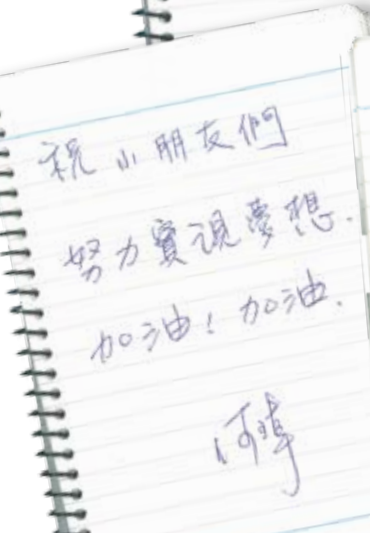 祝小朋友們
努力實現夢想.
加油！加油.